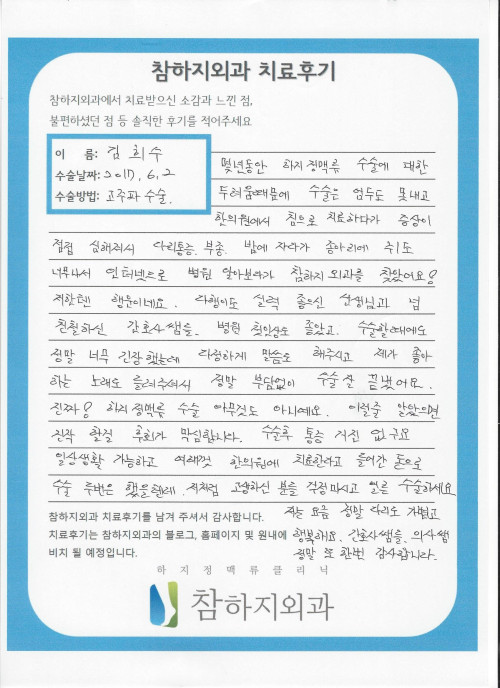 참하지외과 치료후기
참하지외과에서 치료받으신 소감과 느낀 점,
불편하셨던 점 등 솔직한 후기를 적어주세요
이 름: 김희수
수술날짜: 2017. 6. 2
수술방법: 고주파 수술.
몇년동안 하지정맥류 수술에 대한
두려움때문에 수술은 엄두도 못내고
한의원에서 침으로 치료하다가 증상이
점점 심해져서 다리통증. 부종. 밤에 자다가 종아리에 쥐도
너무나서 인터넷으로 병원 알아보다가 참하지외과를 찾았어요!
저한텐 행운이네요. 다행이도 실력 좋으신 선생님과 넘
친절하신 간호사쌤들. 병원 첫인상도 좋았고. 수술할때에도
정말 너무 긴장했는데 다정하게 말씀도 해주시고 제가 좋아
하는 노래도 틀려주셔서 정말 부담없이 수술 잘 끝냈어요.
진짜! 하지정맥류 수술 아무것도 아니예요. 이럴줄 알았으면
진작 할걸 후회가 막심합니다. 수술후 통증 거진 없구요
일상생활 가능하고 여태껏 한의원에 치료한다고 들어간 돈으로
수술 두번은 했을텐데. 저처럼 고생하신 분들 걱정마시고 얼른 수술하세요
저는 요즘 정말 다리도 가볍고
행복해요. 간호사쌤들. 의사쌤
정말 또 한번 감사합니다.
참하지외과 치료후기를 남겨 주셔서 감사합니다.
치료후기는 참하지외과의 블로그, 홈페이지 및 원내에
비치 될 예정입니다.
하지정맥류클리닉
참하지외과